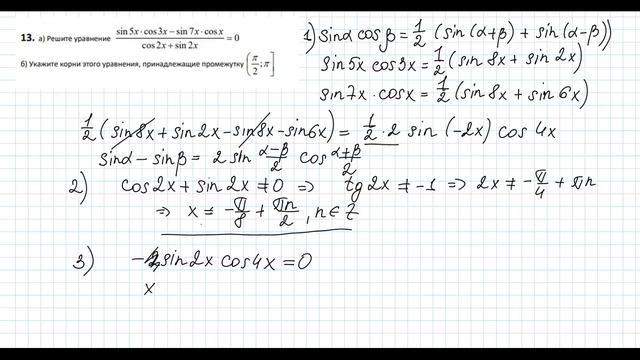 13. а) Решите уравнение (sin 5x · cos 3x − sin 7x · cos x) / (cos 2x + sin 2x) = 0
б) Укажите корни этого уравнения, принадлежащие промежутку (π/2; π]
1) sinα cosβ = 1/2 (sin(α+β) + sin(α-β))
sin5x cos3x = 1/2 (sin 8x + sin 2x)
sin7x · cosx = 1/2 (sin 8x + sin 6x)
1/2 (sin8x + sin2x - sin8x - sin6x) = 1/2 · 2 sin (-2x) cos 4x
sinα - sinβ = 2 sin (α-β)/2 cos (α+β)/2
2) cos2x + sin 2x ≠ 0 => tg2x ≠ -1 => 2x ≠ -π/4 + πn
=> x ≠ -π/8 + πn/2, n ∈ Z
3) - sin2x cos4x = 0
x